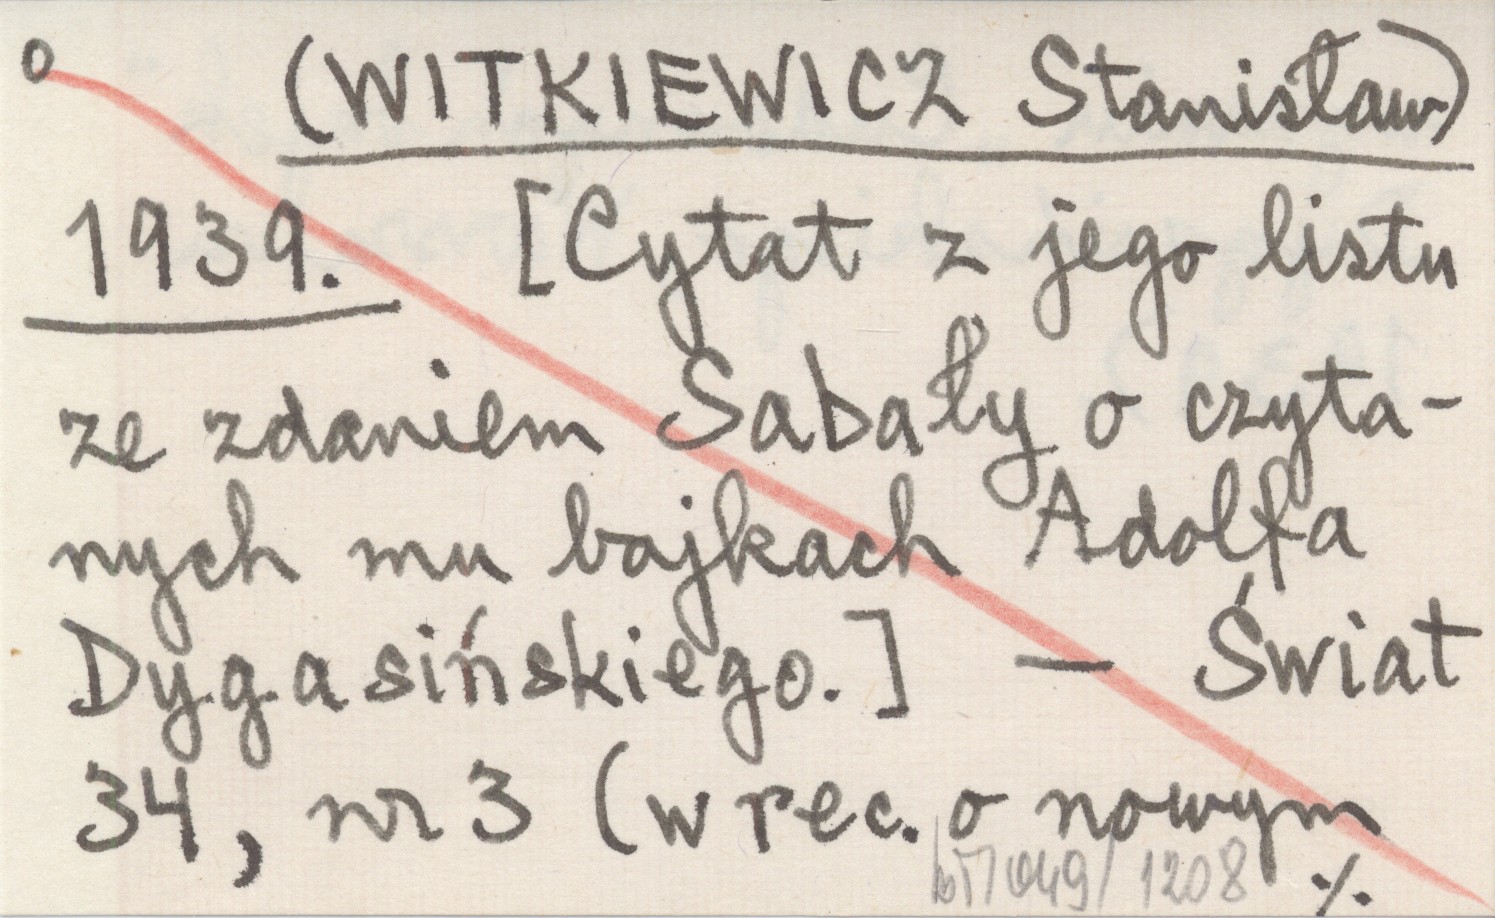 o (WITKIEWICZ Stanisław)
1939. [Cytat z jego listu
ze zdaniem Sabały o czyta-
nych mu bajkach Adolfa
Dygasińskiego.] — Świat
34, nr 3 (w rec. o nowym
1208 ./.